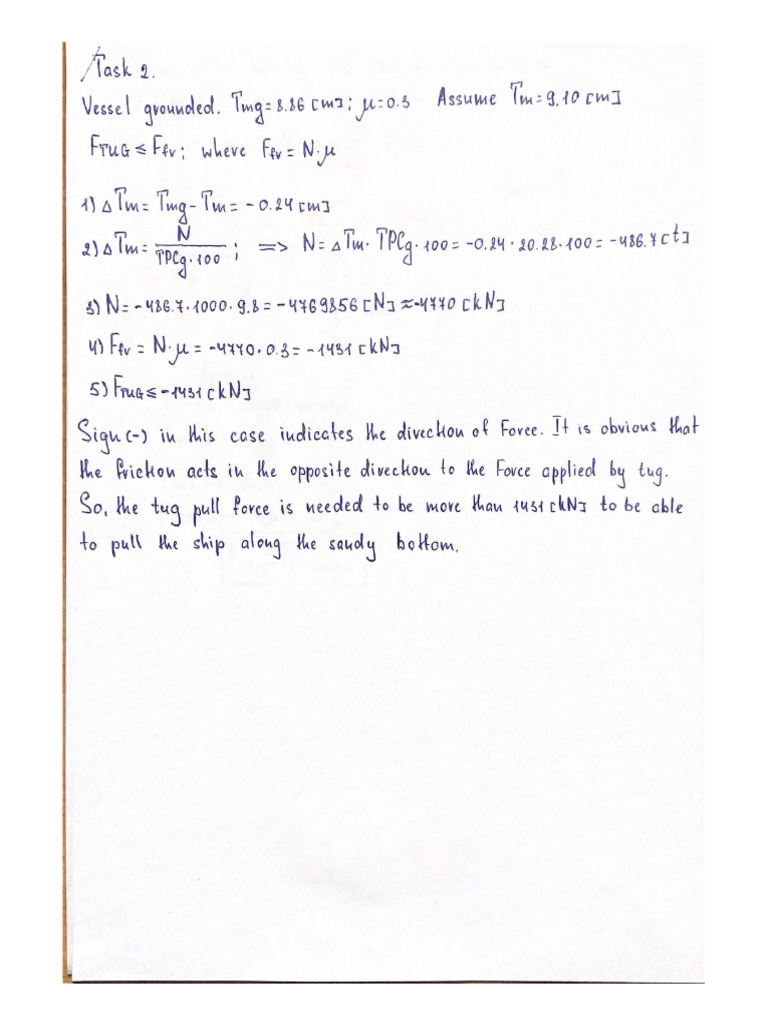 Task 2.
Vessel grounded. Tmg = 8.86 [m]; μ=0.3 Assume Tm = 9.10 [m]
FTUG ≤ Ffr; where Ffr = N·μ
1) ΔTm = Tmg - Tm = -0.24 [m]
2) ΔTm = N / TPCg·100 ; => N = ΔTm·TPCg·100 = -0.24·20.28·100 = -486.7 [t]
3) N = -486.7·1000·9.8 = -4769856 [N] ≈ -4770 [kN]
4) Ffr = N·μ = -4770·0.3 = -1431 [kN]
5) FTUG ≤ -1431 [kN]
Sign (-) in this case indicates the direction of Force. It is obvious that
the friction acts in the opposite direction to the Force applied by tug.
So, the tug pull force is needed to be more than 1431 [kN] to be able
to pull the ship along the sandy bottom.